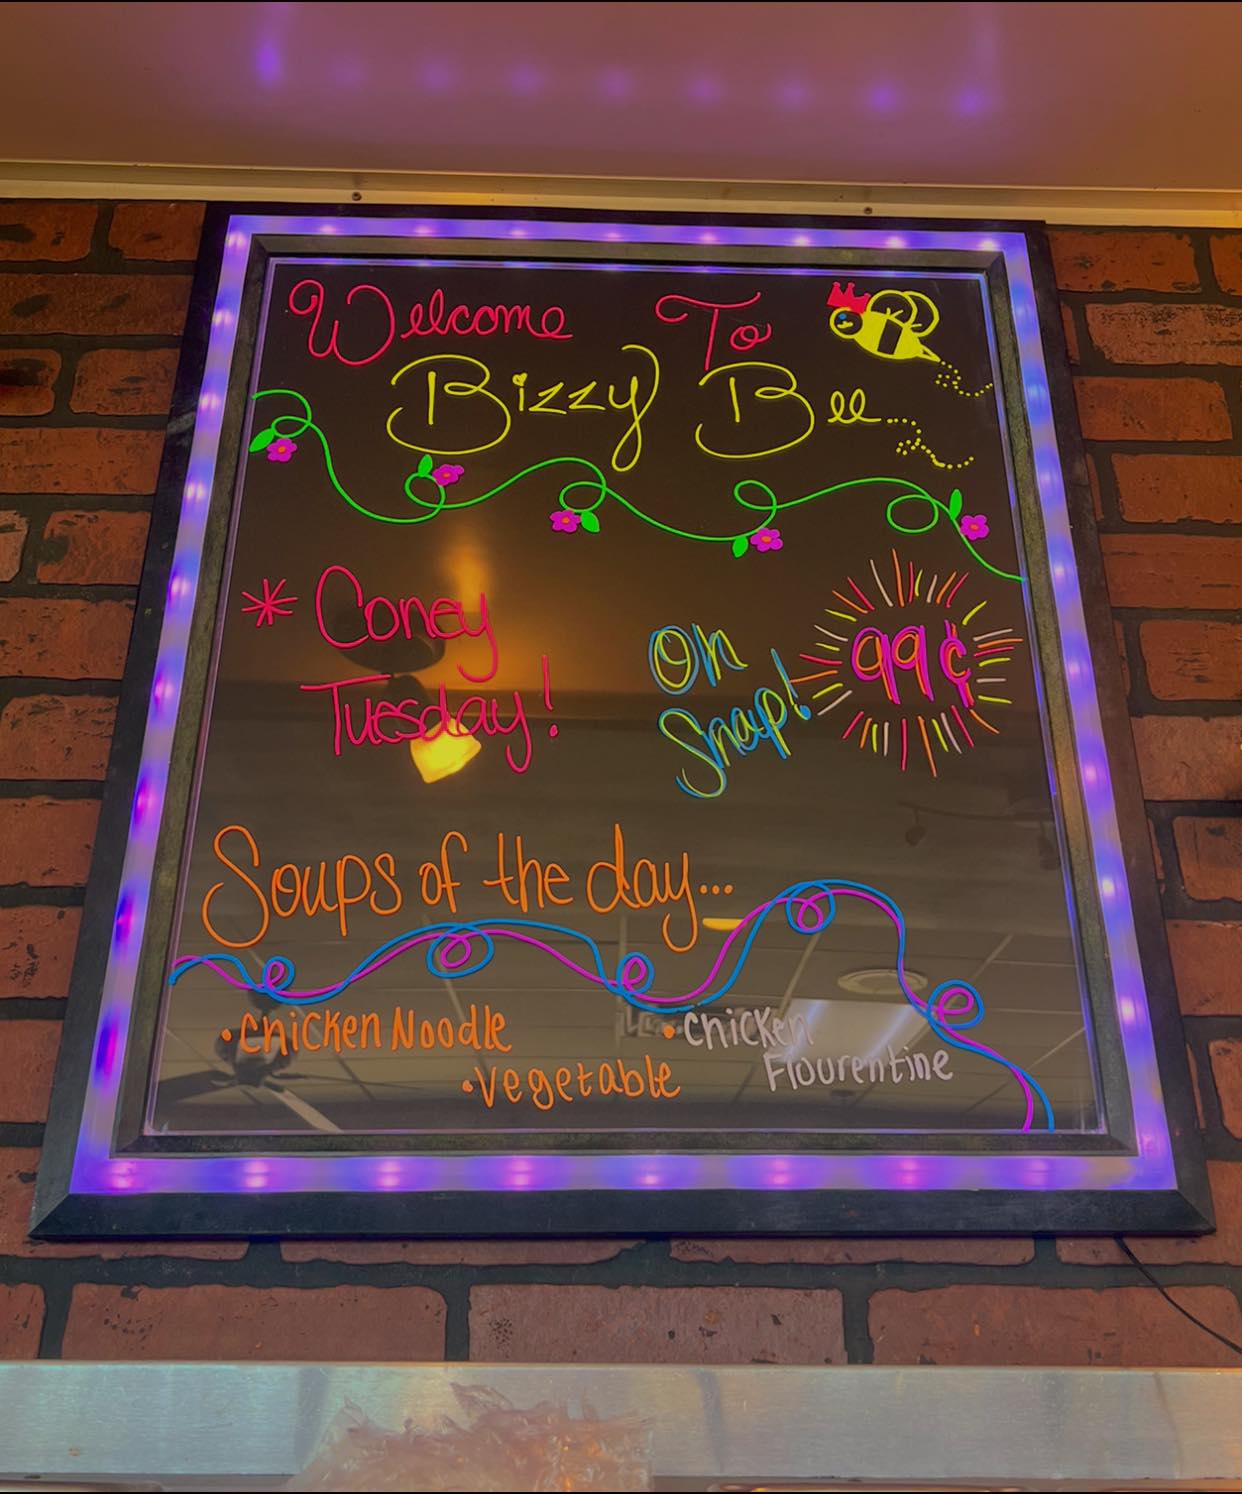 Welcome To
Bizzy Bee...
* Coney
Tuesday!
Oh
Snap!
99¢
Soups of the day...
• chicken Noodle
• vegetable
• chicken
Flourentine